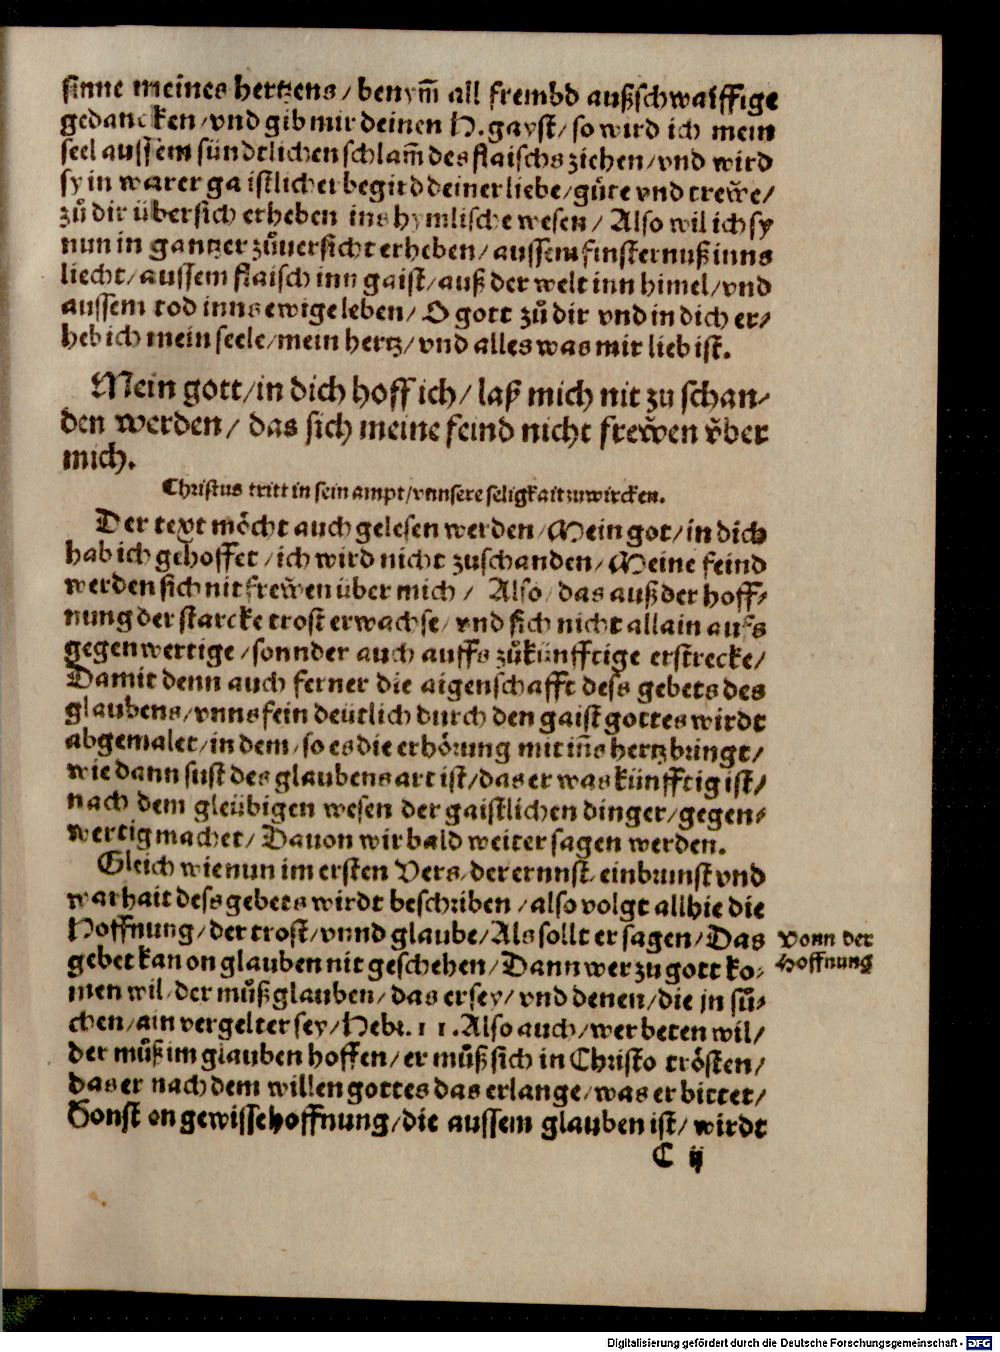 sinne meines hertzens / benym̄ all frembd außschwaiffige
gedancken / vnd gib mir deinen H. gayst / so wird ich mein
seel aussem sündtlichen schlam̄ des flaischs ziehen / vnd wird
sy in warer gaistlicher begird deiner liebe / guͤte vnd trew̆e /
zuͦ dir übersich erheben ins hymlische wesen / Also wil ich sy
nun in gantzer zuͦuersicht erheben / aussem finsternuß inns
liecht / aussem flaisch inn gaist / auß der welt inn himel / vnd
aussem tod inns ewige leben / O gott zuͦ dir vnd in dich er⸗
heb ich mein seele / mein hertz / vnd alles was mir lieb ist.
Mein gott / in dich hoff ich / laß mich nit zu schan⸗
den werden / das sich meine feind nicht frew̆en v̆ber
mich.
Christus tritt in sein ampt / vnnsere seligkait zuwircken.
Der text moͤcht auch gelesen werden / Mein got / in dich
hab ich gehoffet / ich wird nicht zuschanden / Meine feind
werden sich nit frew̆en über mich / Also / das auß der hoff⸗
nung der starcke trost erwachse / vnd sich nicht allain aufs
gegenwertige / sonnder auch auffs zuͦkünfftige erstrecke /
Damit denn auch ferner die aigenschafft dess gebets des
glaubens / vnns fein deütlich durch den gaist gottes wirdt
abgemalet / in dem / so es die erhoͤrung mit in̄s hertz bringt /
wie dann sust des glaubens art ist / das er was künfftig ist /
nach dem gleübigen wesen der gaistlichen dinger / gegen⸗
wertig machet / Dauon wir bald weiter sagen werden.
Gleich wie nun im ersten Vers / der ernnst / einbrunst vnd
warhait dess gebets wirdt beschriben / also volgt allhie die
Hoffnung / der trost / vnnd glaube / Als sollt er sagen / Das
gebet kan on glauben nit geschehen / Dann wer zu gott ko⸗
men wil / der muͦß glauben / das er sey / vnd denen / die jn suͦ⸗
chen / ain vergelter sey / Hebr. 11. Also auch / wer beten wil /
der muͦß im glauben hoffen / er muͦß sich in Christo troͤsten /
das er nach dem willen gottes das erlange / was er bittet /
Sonst on gewisse hoffnung / die aussem glauben ist / wirdt
Vonn der
Hoffnung
C ij
Digitalisierung gefördert durch die Deutsche Forschungsgemeinschaft - DFG